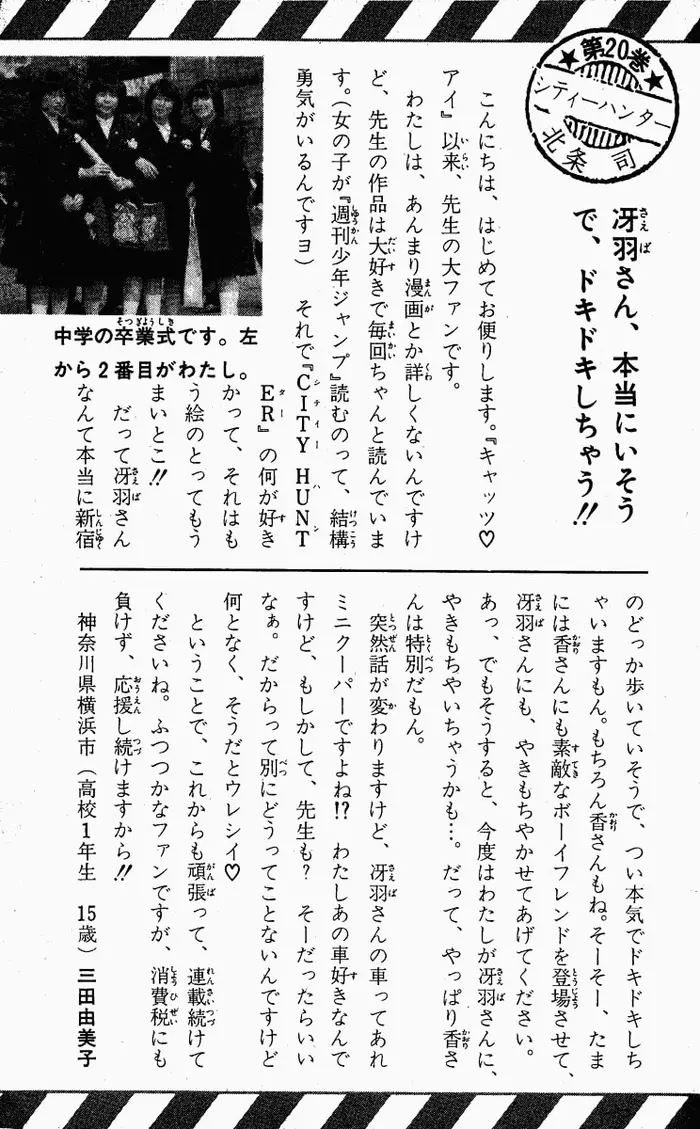 第20巻
シティーハンター
北条 司
冴羽さん、本当にいそう
で、ドキドキしちゃう!!
こんにちは、はじめてお便りします。『キャッツ♡
アイ』以来、先生の大ファンです。
わたしは、あんまり漫画とか詳しくないんですけ
ど、先生の作品は大好きで毎回ちゃんと読んでいま
す。(女の子が『週刊少年ジャンプ』読むのって、結構
勇気がいるんですヨ) それで『CITY HUNT
ER』の何が好き
かって、それはも
う絵のとってもう
まいとこ!!
だって冴羽さん
なんて本当に新宿
中学の卒業式です。左
から2番目がわたし。
のどっか歩いていそうで、つい本気でドキドキしち
ゃいますもん。もちろん香さんもね。そーそー、たま
には香さんにも素敵なボーイフレンドを登場させて、
冴羽さんにも、やきもちやかせてあげてください。
あっ、でもそうすると、今度はわたしが冴羽さんに、
やきもちやいちゃうかも…。だって、やっぱり香さ
んは特別だもん。
突然話が変わりますけど、冴羽さんの車ってあれ
ミニクーパーですよね!? わたしあの車好きなんで
すけど、もしかして、先生も? そーだったらいい
なぁ。だからって別にどうってことないんですけど
何となく、そうだとウレシイ♡
ということで、これからも頑張って、連載続けて
くださいね。ふつつかなファンですが、消費税にも
負けず、応援し続けますから!!
神奈川県横浜市(高校1年生 15歳)三田由美子